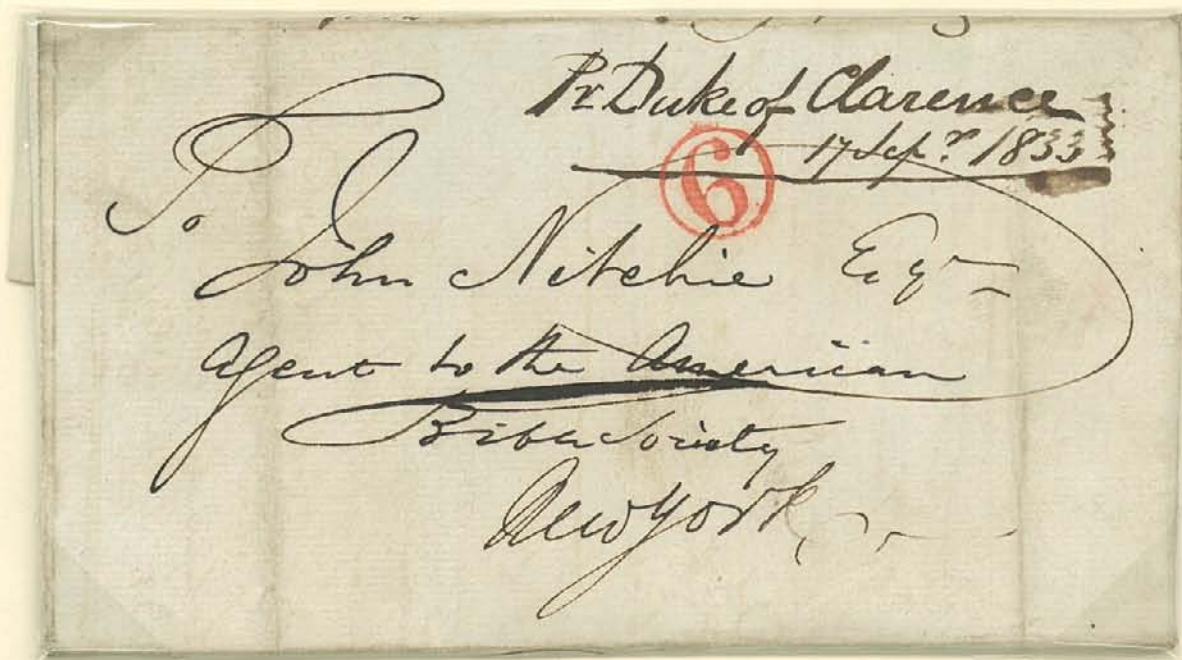 Pr. Duke of Clarence
17 Sepr. 1833
6
To
John Nitchie Esqr
Agent to the American
Bible Society
New York